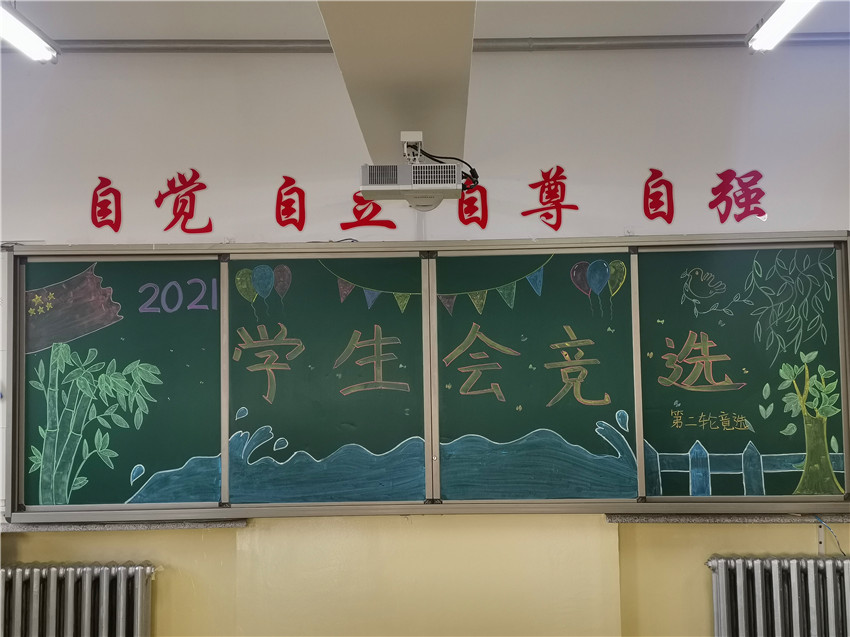 自觉 自立 自尊 自强
2021
学生会竞选
第二轮竟选